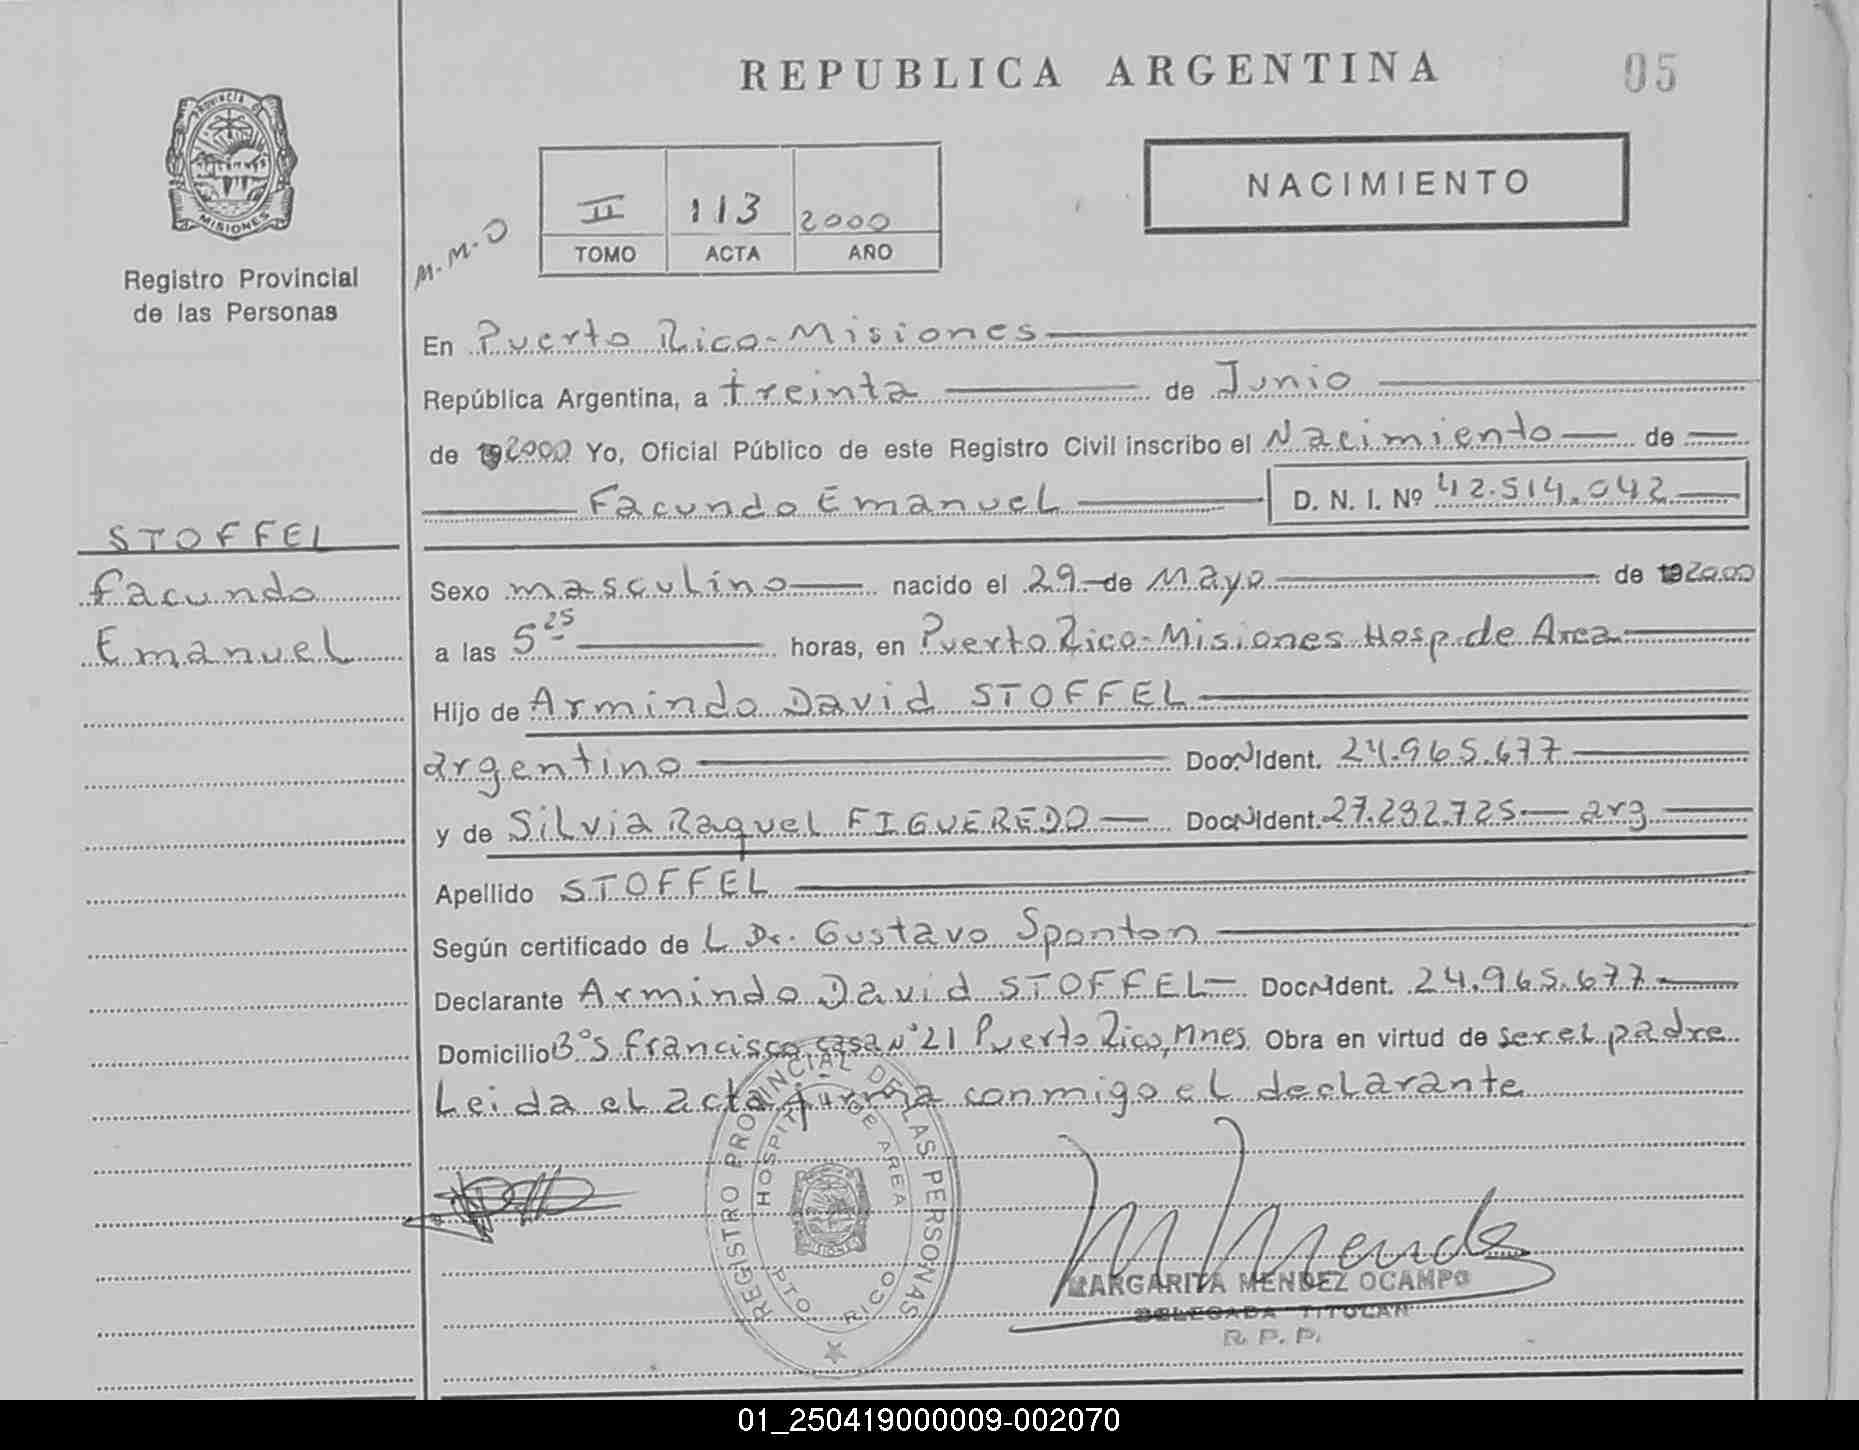 REPUBLICA ARGENTINA
05
PROVINCIA DE
MISIONES
Registro Provincial
de las Personas
M.M.O
II 113 2000
TOMO ACTA AÑO
NACIMIENTO
En Puerto Rico-Misiones
República Argentina, a treinta de Junio
de 2000 Yo, Oficial Público de este Registro Civil inscribo el Nacimiento de
Facundo Emanuel D. N. I. Nº 42.514.042
STOFFEL
Facundo
Emanuel
Sexo masculino nacido el 29 de Mayo de 192000
a las 5 25 horas, en Puerto Rico-Misiones Hosp. de Area
Hijo de Armindo David STOFFEL
argentino Doc. N Ident. 24.965.677
y de Silvia Raquel FIGUEREDO Doc. N Ident. 27.292.725 arg
Apellido STOFFEL
Según certificado de L Dr. Gustavo Sponton
Declarante Armindo David STOFFEL Doc. N Ident. 24.965.677
Domicilio B° S. Francisco, casa N° 21 Puerto Rico, Mnes. Obra en virtud de ser el padre
Leida el acta firma conmigo el declarante
REGISTRO PROVINCIAL DE LAS PERSONAS
HOSPITAL DE AREA
PTO RICO
M Mendez
MARGARITA MENDEZ OCAMPO
DELEGADA TITULAR
R. P. P.
01_250419000009-002070